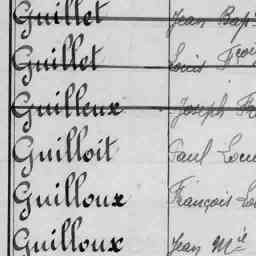 Guillet Jean Bap
Guillet Louis Frois
Guilleux Joseph Fr
Guilloit Paul Loui
Guilloux François Lo
Guilloux Jean Mie